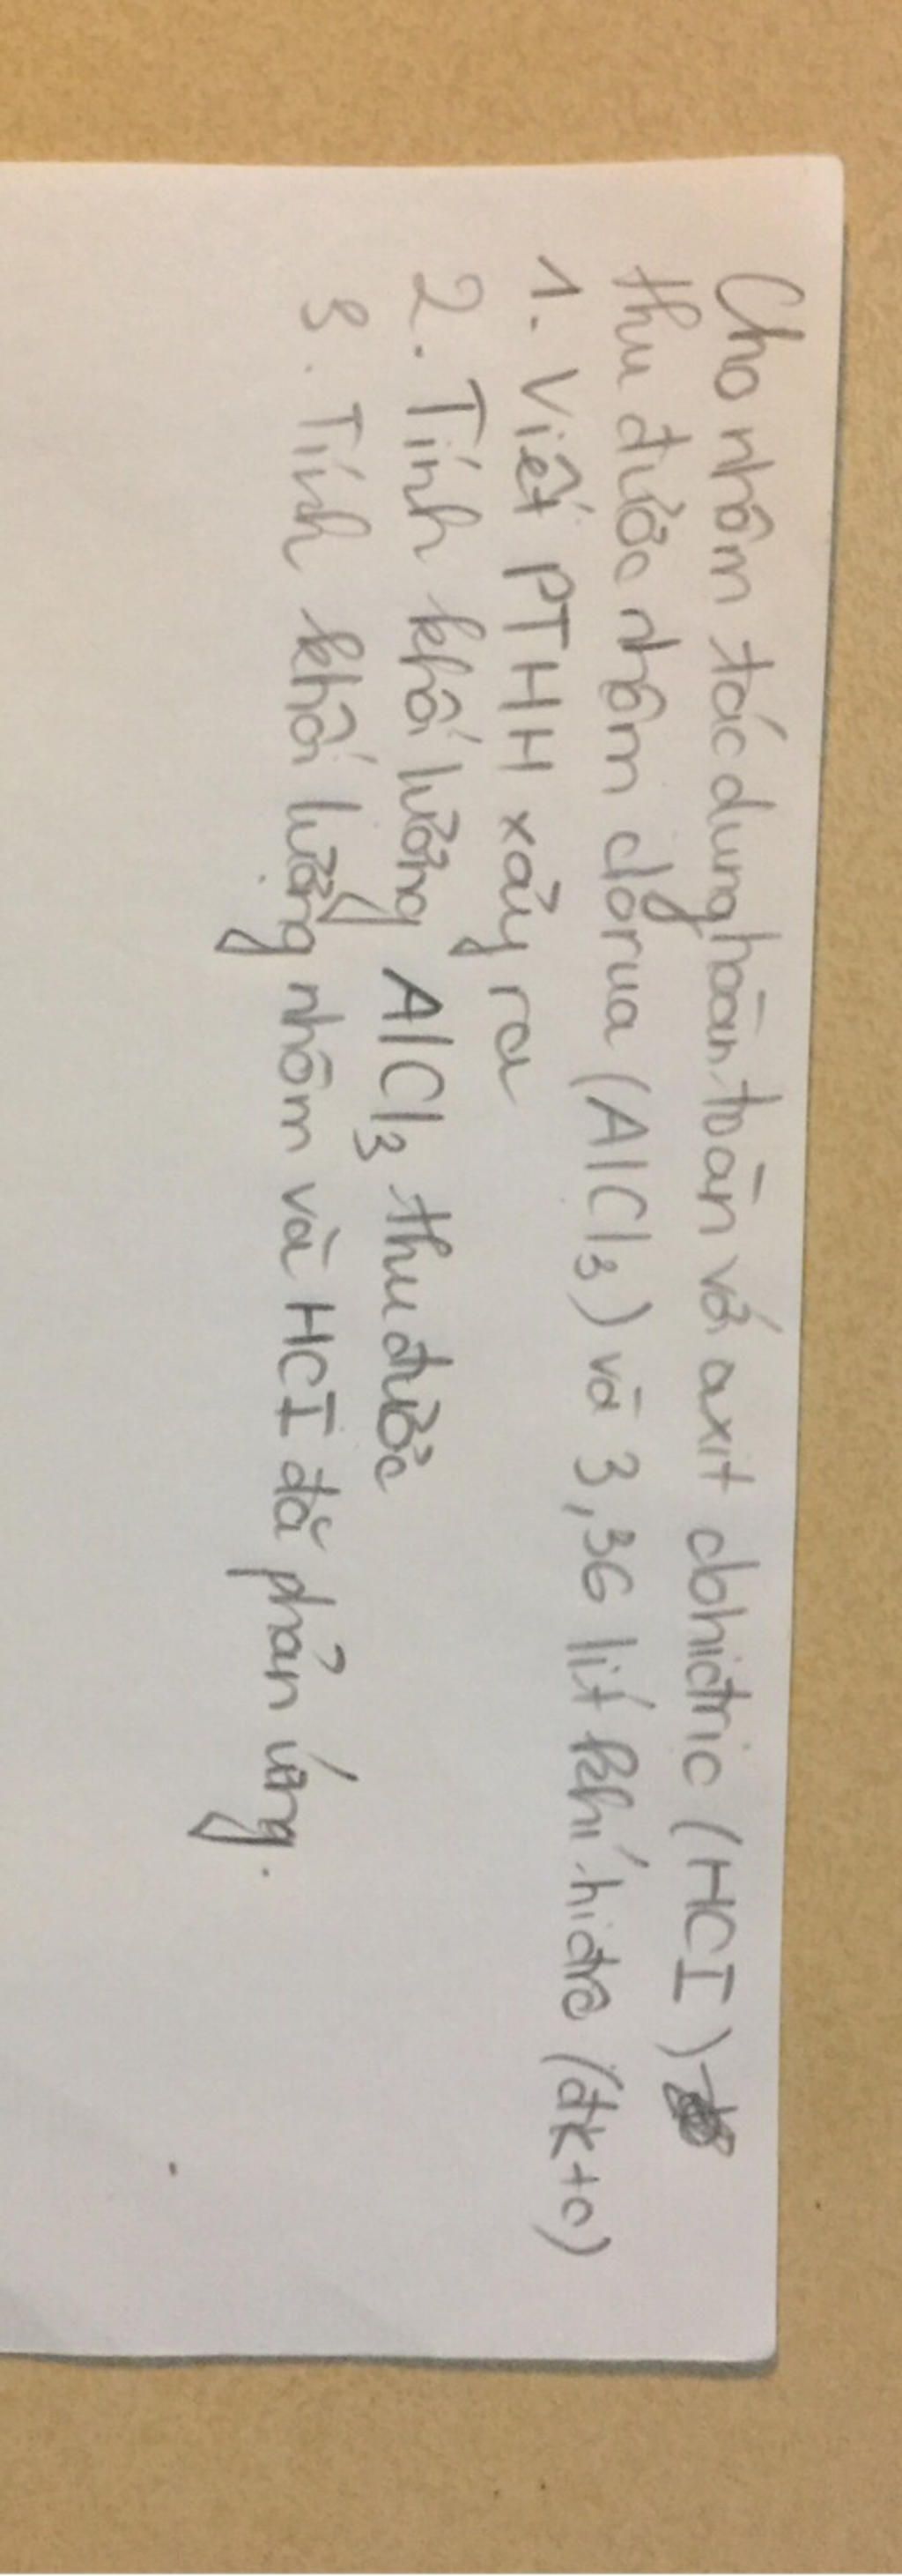 Cho nhôm tác dụng hoàn toàn với axit clohiđric (HCl)
thu được nhôm clorua (AlCl₃) và 3,36 lít khí hiđro (đktc)
1. Viết PTHH xảy ra
2. Tính khối lượng AlCl₃ thu được
3. Tính khối lượng nhôm và HCl đã phản ứng.